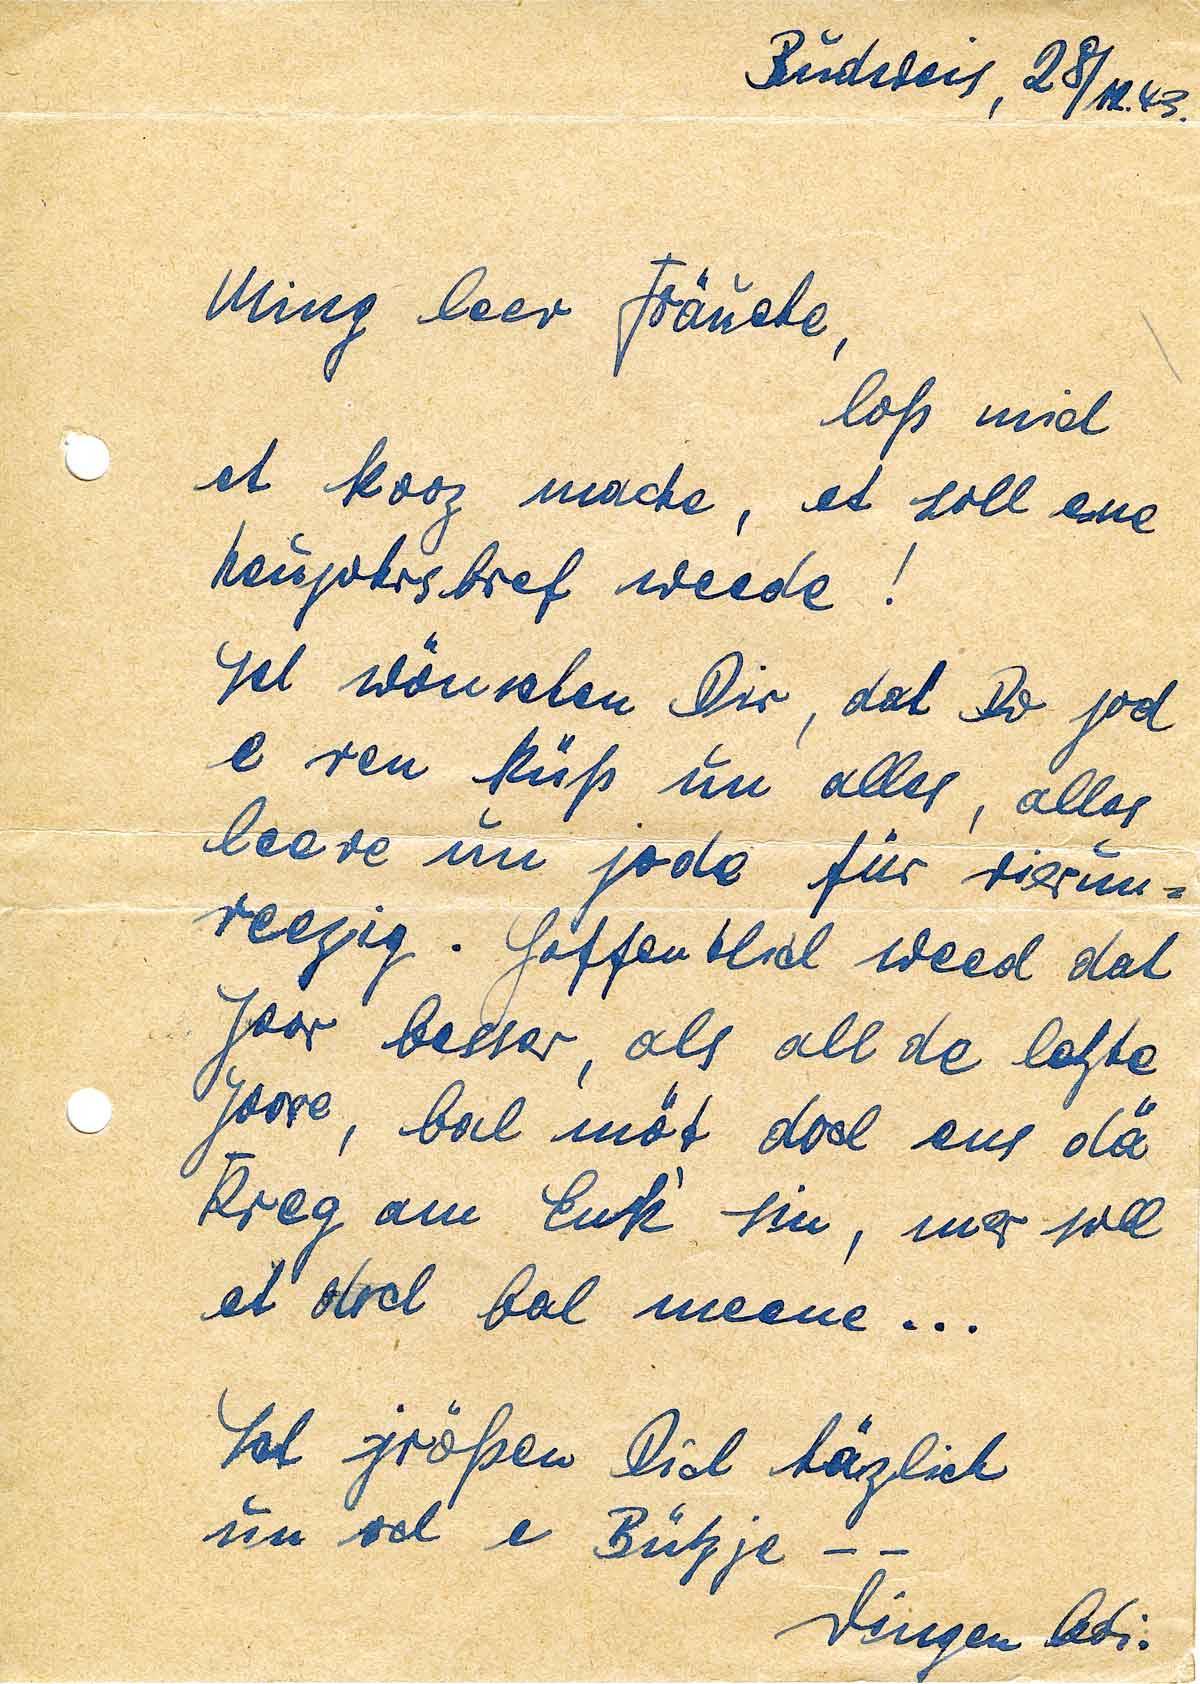 Budweis, 28/12.43.
Ming leev Fräuche,
loß mich
et kooz mache, et soll ene
Neujohrsbref weede!
Ich wönschen Dir, dat Do jod
e ren küß un alles, alles
leeve un jode für vierun=
veezig. Hoffentlich weed dat
Joor besser, als all de letzte
Joore, bal möt doch ens dä
Kreg am Eńk sin, mer soll
et doch bal meene...
Ich jrößen Dich häzlich
un och e Bützje - -
Dingen Adi.